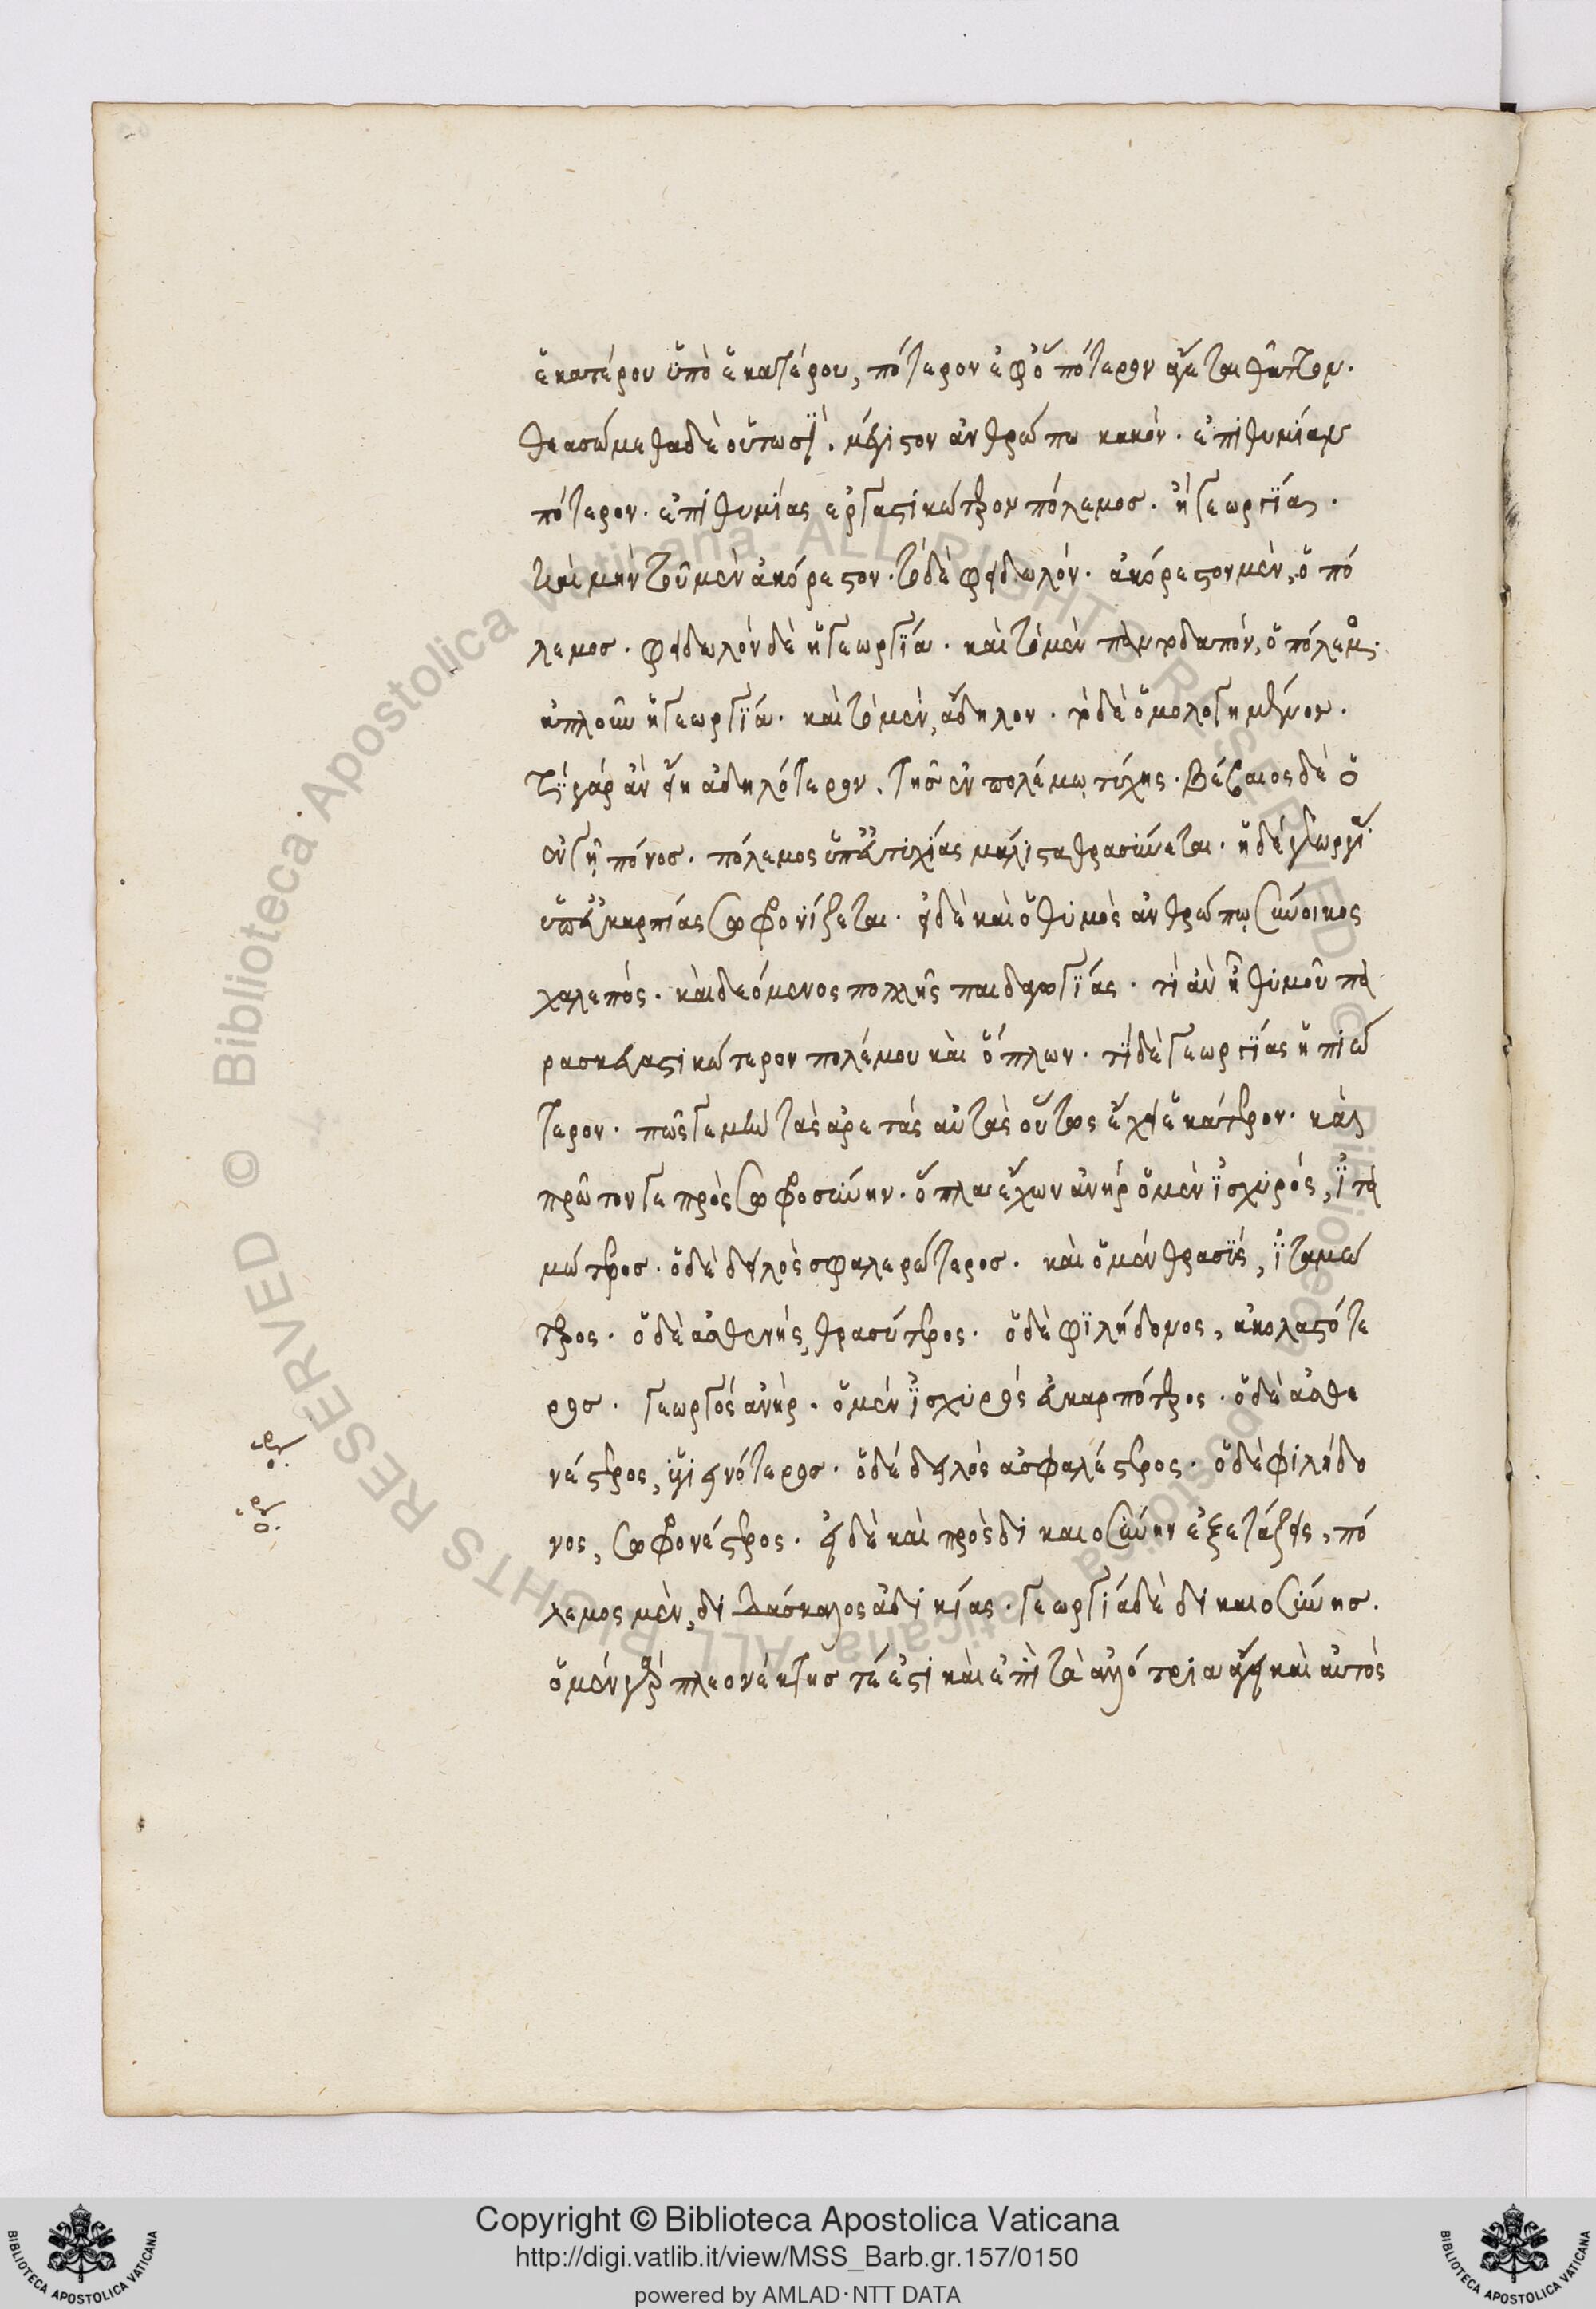 ἑκατέρου ὑπὸ ἑκατέρου, πότερον ἐφ' ὁπότερον ἄγεται θᾶττον.
θεασώμεθα δὲ οὑτωσΐ. μέγιστον ἀνθρώπω κακὸν. ἐπιθυμίαν
πότερον. ἐπιθυμίας ἐργαστικώτερον πόλεμος. ἢ γεωργΐας.
καὶ μὴν τοῦ μὲν ἀκόρεστον. τὸ δὲ φειδωλόν. ἀκόρεστον μὲν, ὁ πό
λεμος. φειδωλὸν δὲ ἡ γεωργΐα. καὶ τὸ μὲν παντοδαπόν, ὁ πόλεμος.
ἁπλοῦν ἡ γεωργΐα. καὶ τὸ μὲν, ἄδηλον. τὸ δὲ ὁμολογημένον.
τΐ γάρ ἂν εἴη ἀδηλότερον, τῆς ἐν πολέμῳ τύχης. βέβαιος δὲ ὁ
ἐν γῆ, πόνος. πόλεμος ὑπ' εὐτυχίας μάλιστα θρασύνεται. ἡ δέ γεωργί
ὑπ' εὐκαρπίας σωφρονίζεται. εἰ δὲ καὶ ὁ θυμὸς ἀνθρώπῳ σύνοικος
χαλεπός. καὶ δεόμενος πολλῆς παιδαγωγΐας. τί ἂν ᾖ θυμοῦ πα
ρασκευαστικώτερον πολέμου καὶ ὅπλων. τΐ δὲ γεωργΐας ἠπιώ
τερον. πῶς γε μὴν τὰς ἀρετάς αὐτὰς οὕτως ἔχει ἑκάτερον. καὶ
πρῶτον γε πρὸς σωφροσύνην. ὅπλα ἔχων ἀνήρ ὁ μὲν ἰσχυρός, ἰτα
μώτερος. ὁ δὲ δειλὸς σφαλερώτερος. καὶ ὁ μὲν θρασΰς, ἰταμώ
τερος. ὁ δὲ ἀσθενής, θρασύτερος. ὁ δὲ φιλήδονος, ἀκολαστότε
ρος. γεωργός ἀνὴρ. ὁ μὲν ἰσχυρός εὐκαρπότερος. ὁ δὲ ἀσθε
νέστερος, ὑγιεινότερος. ὁ δὲ δειλός ἀσφαλέστερος. ὁ δὲ φιλήδο
νος, σωφρονέστερος. εἰ δὲ καὶ πρὸς δικαιοσύνην ἐξετάζεις, πό
λεμος μὲν, διδάσκαλος ἀδικίας. γεωργία δὲ δικαιοσύνης.
ὁ μὲν γὰρ πλεονέκτης τέ ἐστι καὶ ἐπὶ τὰ ἀλλότρια ἄγει καὶ αὐτὸς
Copyright © Biblioteca Apostolica Vaticana
http://digi.vatlib.it/view/MSS_Barb.gr.157/0150
powered by AMLAD·NTT DATA